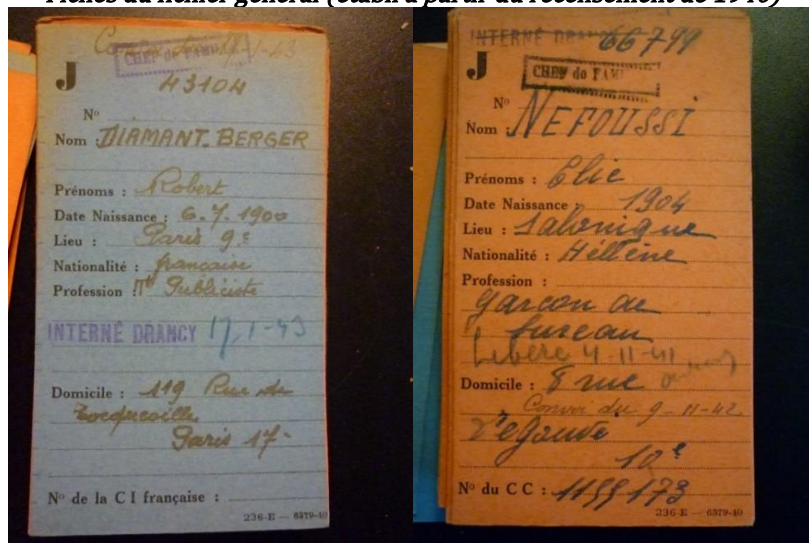 Fiches du fichier général (établi à partir du recensement de 1940)
CHEF de FAMI
J
43104
N°
Nom : DIAMANT-BERGER
Prénoms : Robert
Date Naissance : 6.7.1900
Lieu : Paris 9e
Nationalité : française
Profession : Publiciste
INTERNÉ DRANCY 17.1-43
Domicile : 119 Rue de
Tocqueville
Paris 17-
N° de la C I française :
236-E — 6379-40
INTERNÉ DRANCY 66799
J
CHEF de FAMI
N°
Nom NEFOUSSI
Prénoms : Elie
Date Naissance : 1904
Lieu : Salonique
Nationalité : Héllène
Profession :
garçon de
bureau
Libéré 4-11-41
Domicile : 8 rue
Convoi du 9-11-42
10e
N° du C C : 1199173
236-E — 6379-40